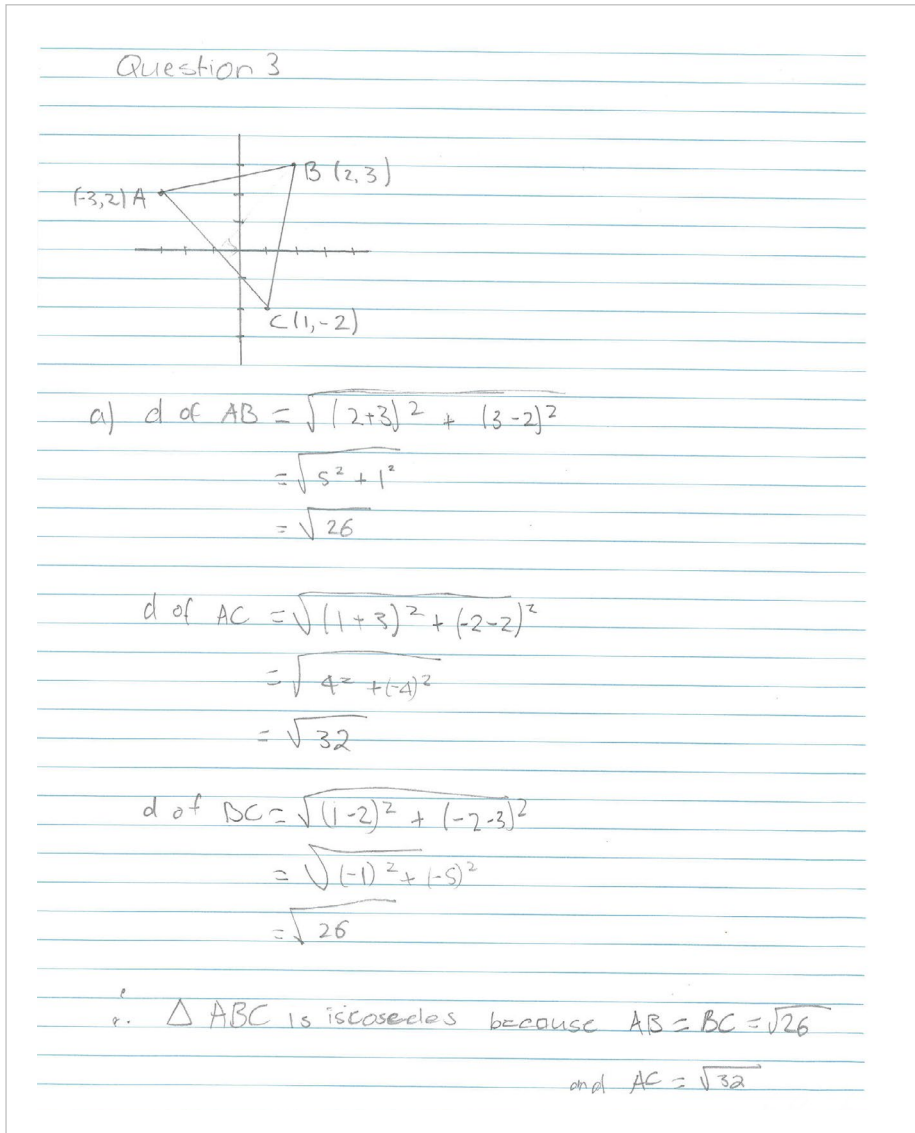 Question 3
B (2,3)
(-3,2) A
C(1,-2)
a) d of AB = √((2+3)² + (3-2)²)
= √(5² + 1²)
= √26
d of AC = √((1+3)² + (-2-2)²)
= √(4² + (-4)²)
= √32
d of BC = √((1-2)² + (-2-3)²)
= √((-1)² + (-5)²)
= √26
∴ △ ABC is iscosecles because AB = BC = √26
and AC = √32